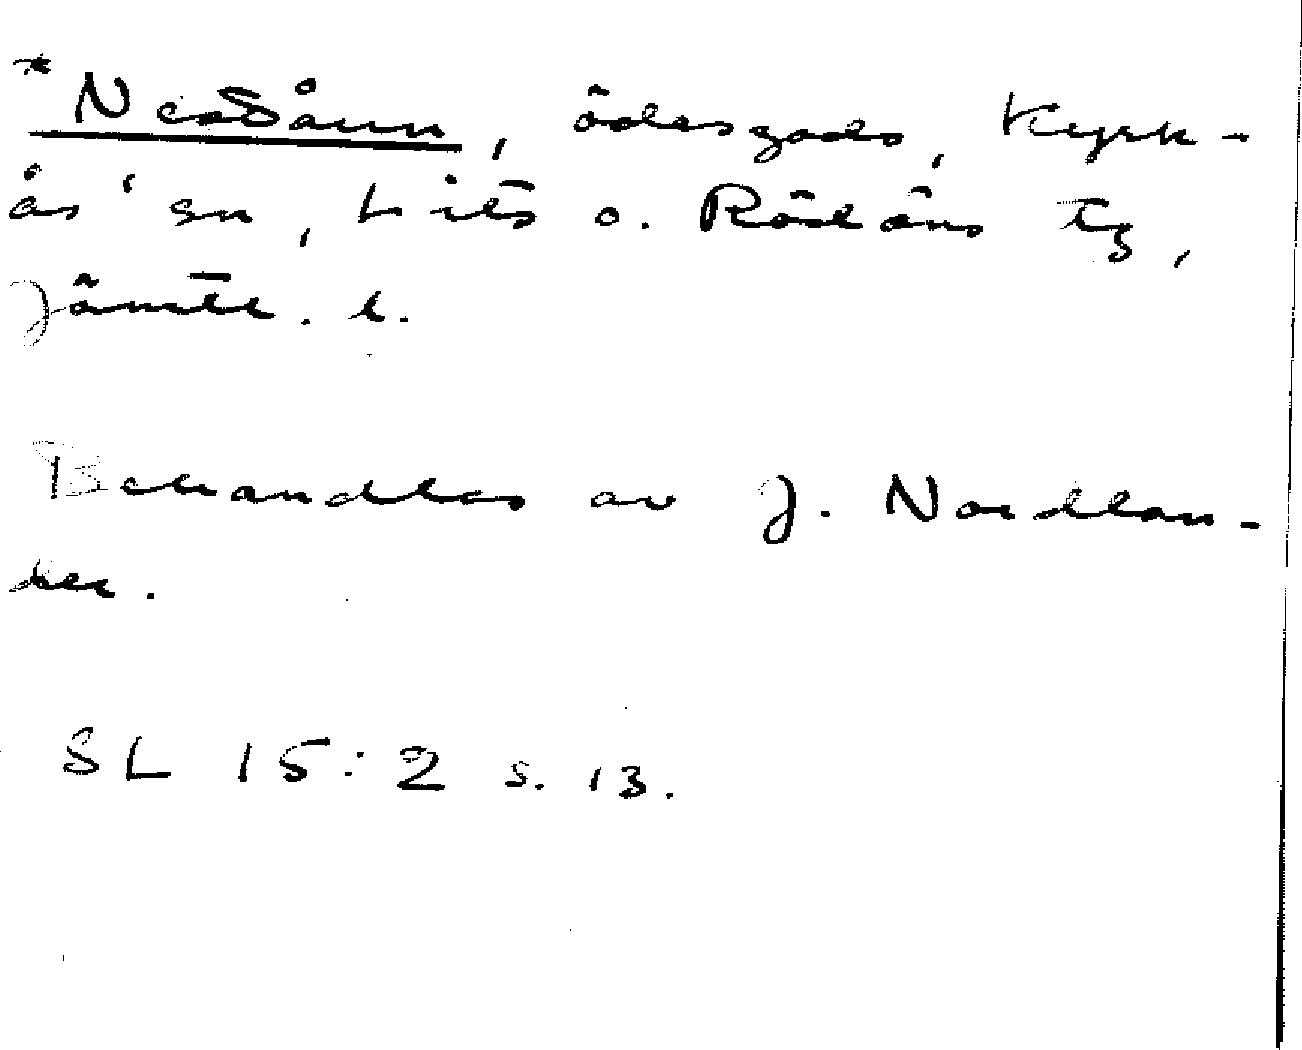 ödesgård, Kyrk-
ås' sn, Lits o. Rödöns tg,
Jämtl. l.
Behandlas av J. Nordlan-
der.
SL 15:2 s. 13.